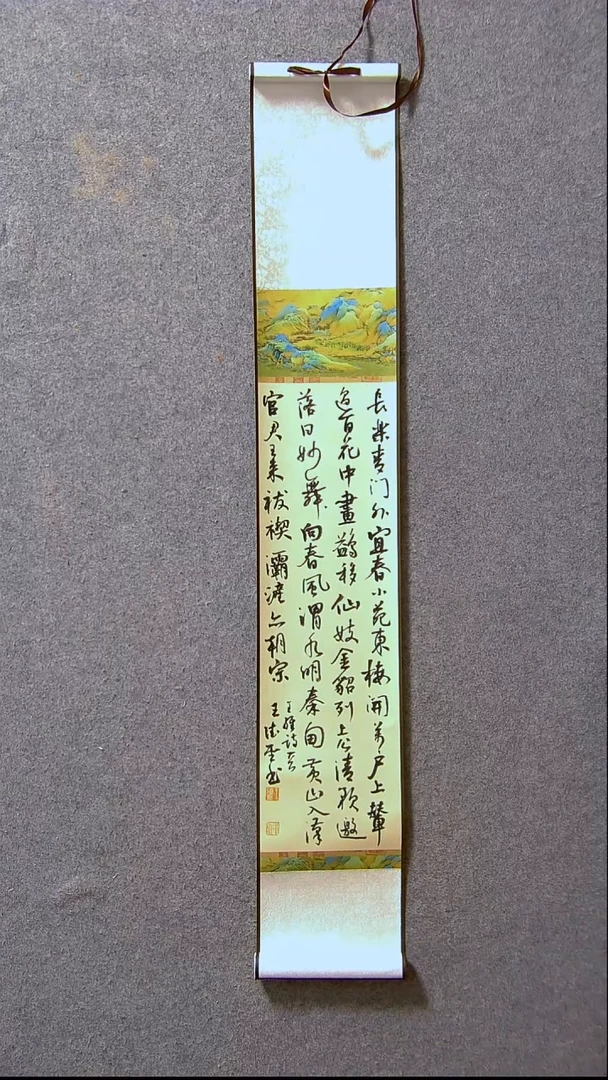 長樂青门外宜春小苑東樓開萬户上輦
過百花中畫鷁移仙妓金貂列上公清歌邀
落日妙舞向春風渭水明秦甸黄山入漢
宫君王来祓禊灞滻亦朝宗
王維詩
王书